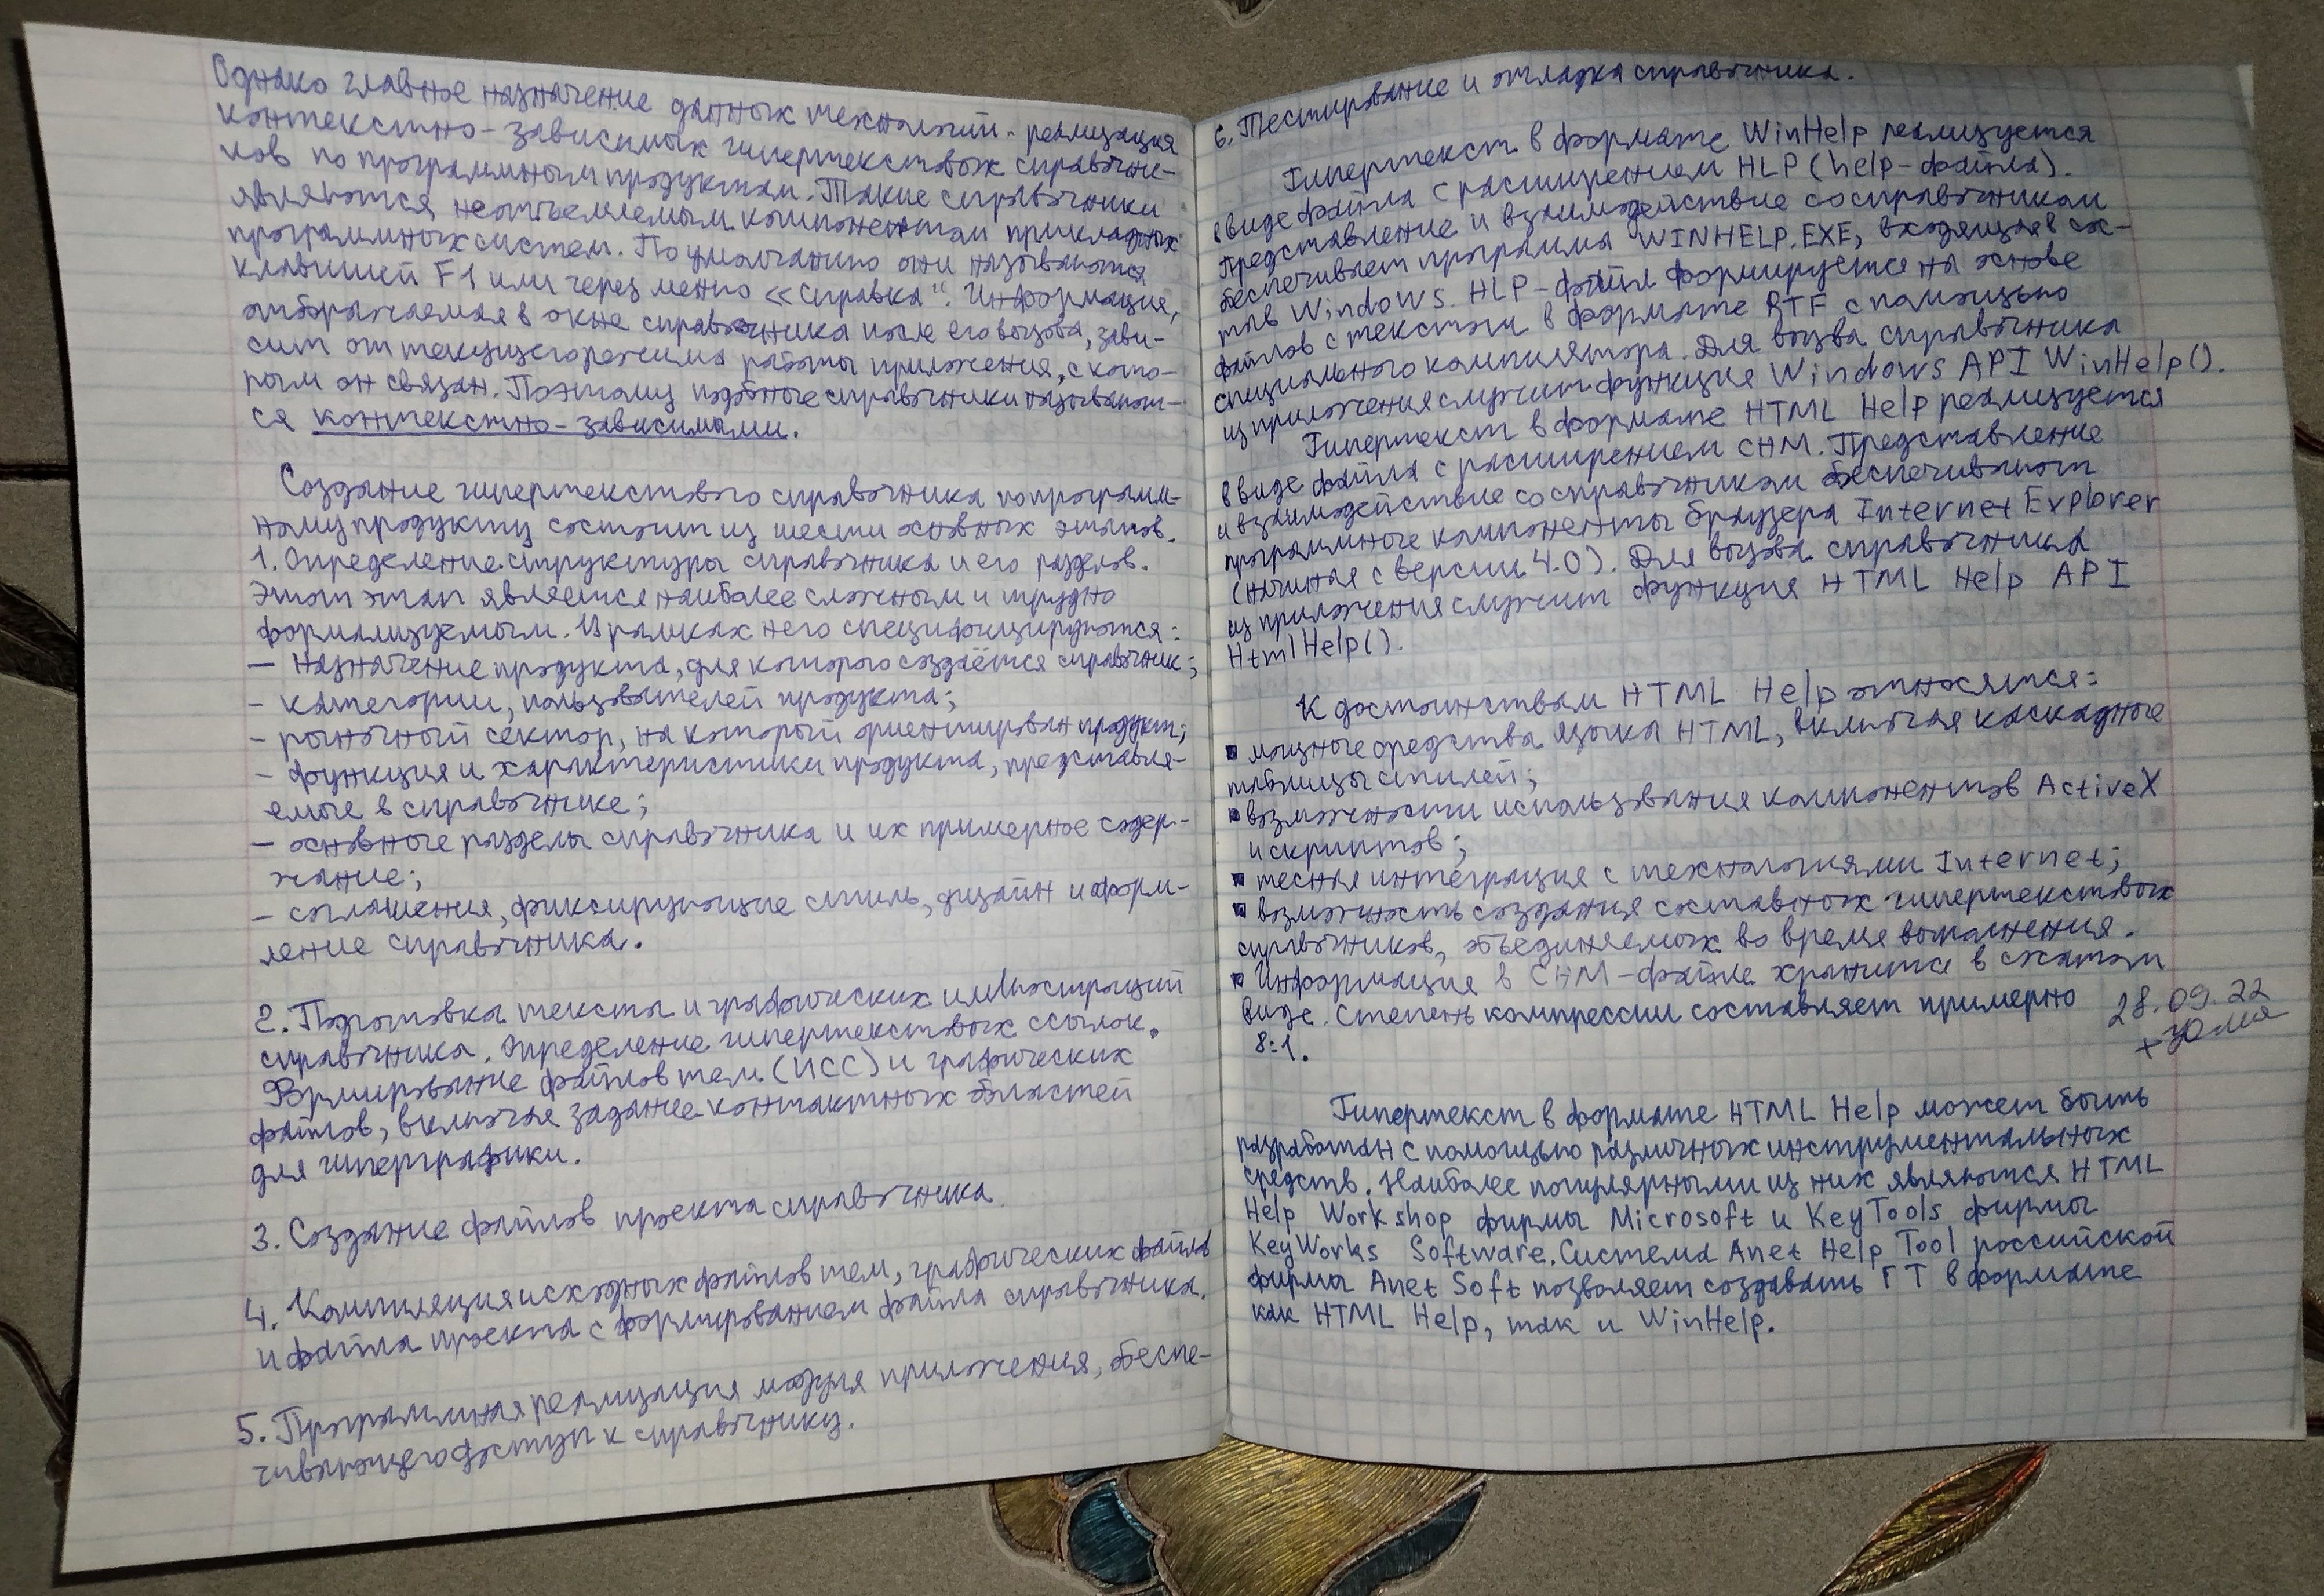 Однако главное назначение данных технологий - реализация
контекстно-зависимых гипертекстовых справочни-
ков по программным продуктам. Такие справочники
являются неотъемлемым компонентом прикладных
программных систем. По умолчанию они называются
клавишей F1 или через меню «Справка". Информация,
отображаемая в окне справочника после его вызова, зави-
сит от текущего режима работы приложения, с кото-
рым он связан. Поэтому подобные справочники называют-
ся контекстно-зависимыми.
Создание гипертекстового справочника по програм-
ному продукту состоит из шести основных этапов.
1. Определение структуры справочника и его разделов.
Этот этап является наиболее сложным и трудно
формализуемым. В рамках него специфицируются:
— назначение продукта, для которого создаётся справочник;
- категории, пользователей продукта;
- рыночный сектор, на который ориентирован продукт;
- функция и характеристики продукта, представля-
емые в справочнике;
— основные разделы справочника и их примерное содер-
жание;
— соглашения, фиксирующие стиль, дизайн и оформ-
ление справочника.
2. Подготовка текста и графических иллюстраций
справочника. Определение гипертекстовых ссылок.
Формирование файлов тем (ИСС) и графических
файлов, включая задание контактных областей
для гиперграфики.
3. Создание файлов проекта справочника.
4. Компиляция исходных файлов тем, графических файлов
и файла проекта с формированием файла справочника.
5. Программная реализация модуля приложения, обеспе-
чивающего доступ к справочнику.
6. Тестирование и отладка справочника.
Гипертекст в формате WinHelp реализуется
в виде файла с расширением HLP (help-файла).
Представление и взаимодействие со справочником
обеспечивает программа WINHELP.EXE, входящая в сос-
тав Windows. HLP-файл формируется на основе
файлов с текстом в формате RTF с помощью
специального компилятора. Для вызова справочника
из приложения служит функция Windows API WinHelp().
Гипертекст в формате HTML Help реализуется
в виде файла с расширением CHM. Представление
и взаимодействие со справочником обеспечивают
программные компоненты браузера Internet Explorer
(начиная с версии 4.0). Для вызова справочника
из приложения служит функция HTML Help API
HtmlHelp().
К достоинствам HTML Help относятся:
▪ мощные средства языка HTML, включая каскадные
таблицы стилей;
▪ возможности использования компонентов ActiveX
и скриптов;
▪ тесная интеграция с технологиями Internet;
▪ возможность создания составных гипертекстовых
справочников, объединяемых во время выполнения.
▪ Информация в CHM-файле хранится в сжатом
виде. Степень компрессии составляет примерно
8:1.
28.09.22
Гипертекст в формате HTML Help может быть
разработан с помощью различных инструментальных
средств. Наиболее популярными из них являются HTML
Help Workshop фирмы Microsoft и KeyTools фирмы
KeyWorks Software. Система Anet Help Tool российской
фирмы Anet Soft позволяет создавать ГТ в формате
как HTML Help, так и WinHelp.